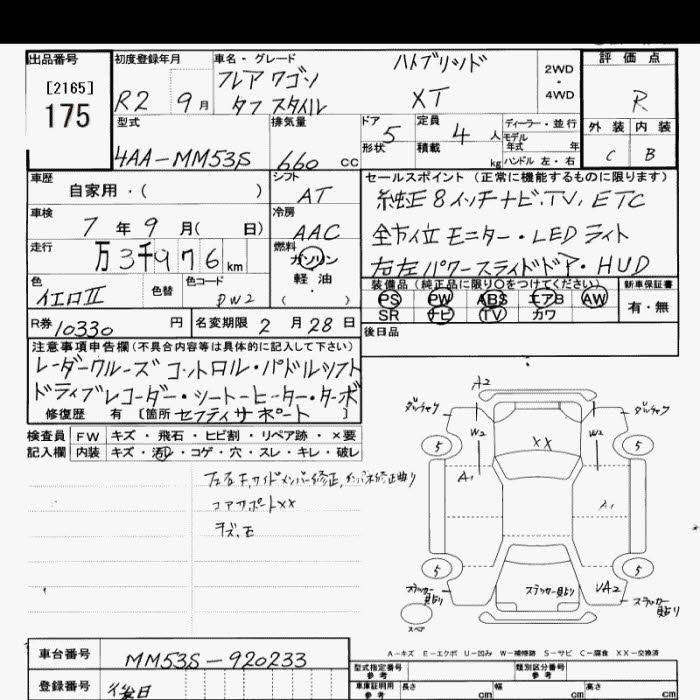 出品番号 初度登録年月 車名・グレード 評価点
[2165]
175
R2 9月
フレア ワゴン ハイブリッド
タフ スタイル XT
2WD
・
4WD
R
外装 内装
C B
型式 排気量 ドア 定員 ディーラー・並行
4AA-MM53S 660 cc 5 4人
モデル年式 年
形状 積載 kg ハンドル 左・右
車歴 シフト セールスポイント (正常に機能するものに限ります)
自家用・( ) AT
純正8インチナビ.TV.ETC
車検 冷房
7年9月( 日) AAC
全方位モニター・LEDライト
走行 燃料
万3千976km ガソリン
右左パワースライドドア・HUD
軽油
( )
色 色替 色コード
イエロⅡ DW2
装備品 (純正品に限り○をつけてください) 新車保証書
PS PW ABS エアB AW
SR ナビ TV カワ
有・無
R券 10330円 名変期限 2月28日
後日品
注意事項申告欄 (不具合内容等は具体的に記入して下さい)
レーダークルーズコントロル・パドルシフト
ドライブレコーダー・シートヒーター・ターボ
修復歴 有 [箇所 セフティサポート ]
検査員 FW キズ・飛石・ヒビ割・リペア跡・×要
記入欄 内装 キズ・汚レ・コゲ・穴・スレ・キレ・破レ
コアサポートXX
A2
W2 W2
XX
A1 A1
5 5
5 5
ステッカー貼り ステッカー貼り UA2 ステッカー貼り
スペア
A-キズ E-エクボ U-凹み W-補修跡 S-サビ C-腐食 XX-交換済
車台番号 MM53S-920233
型式指定番号 参考 類別区分番号 参考
登録番号 後日
車庫証明用 参考 長さ cm 幅 cm 高さ cm